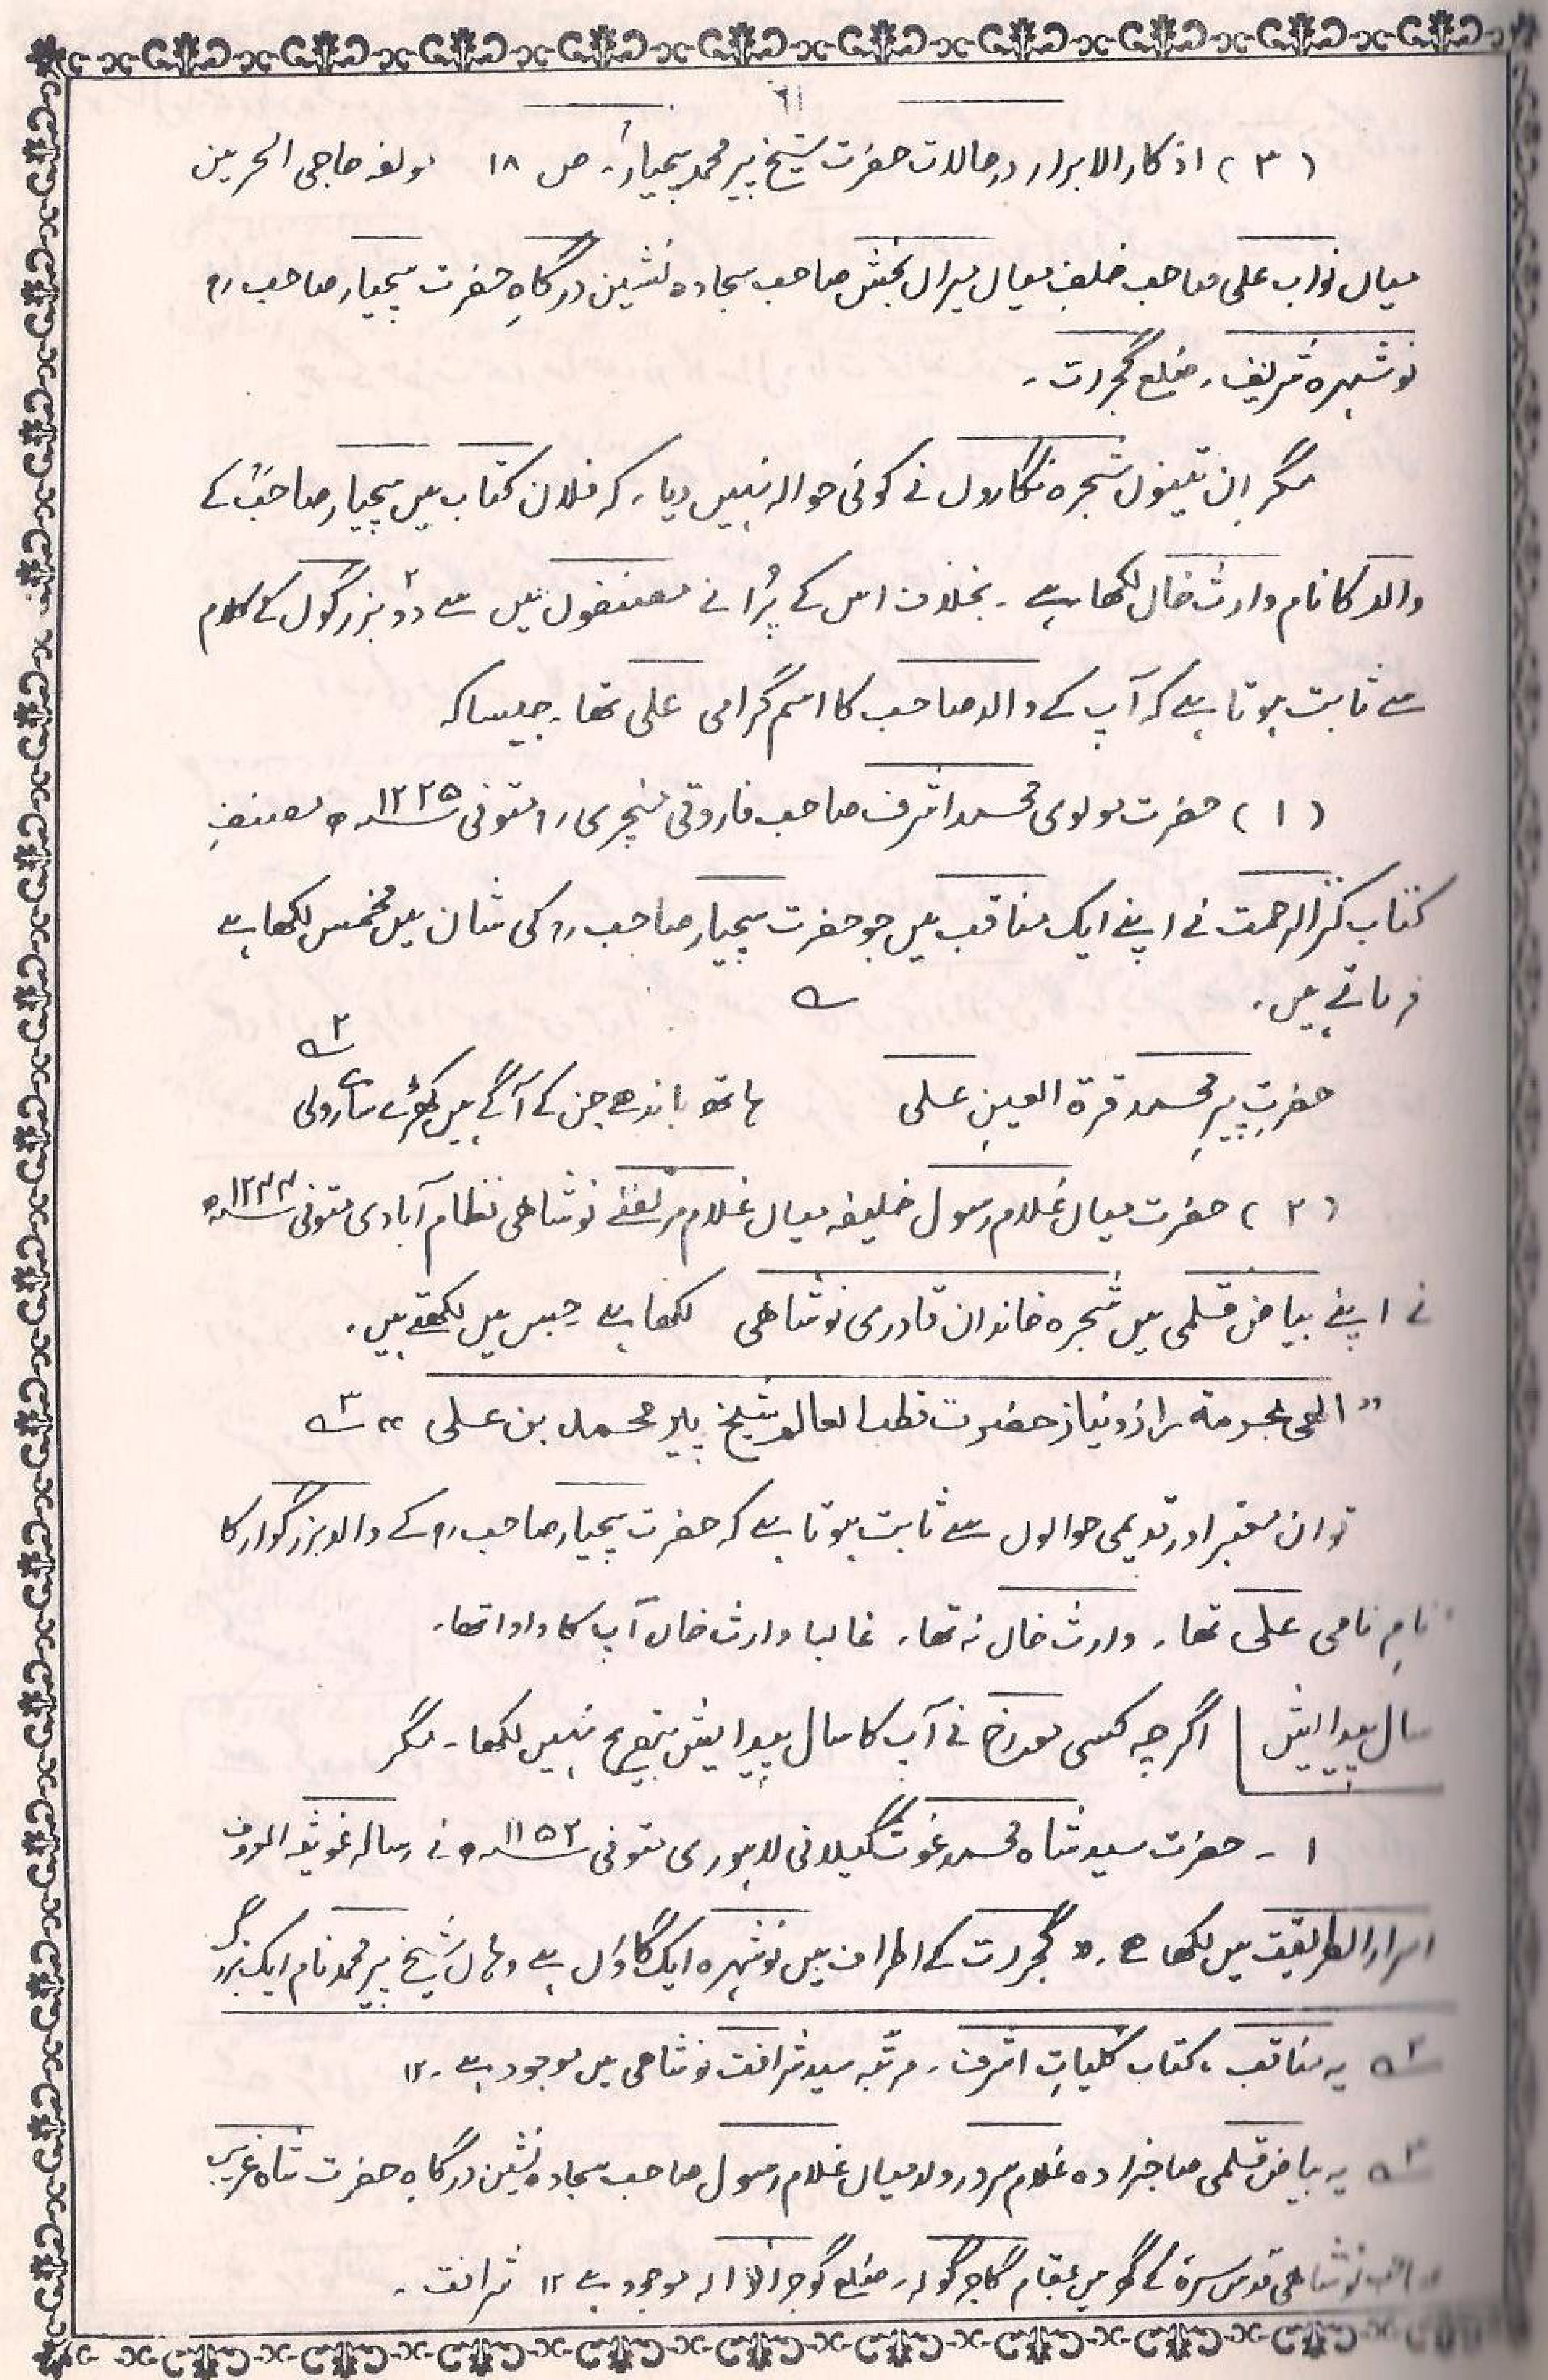 ٦١
(٣) اذکار الابرار در حالات حضرت شیخ پیر محمد سچیارؒ۔ ص ١٨ مولفہ حاجی الحرمین
میاں نواب علی صاحب خلفِ میاں میراں بخش صاحب سجادہ نشین درگاہِ حضرت سچیار صاحب رح
نوشہرہ شریف۔ ضلع گجرات۔
مگر اِن تینوں شجرہ نگاروں نے کوئی حوالہ نہیں دیا۔ کہ فلان کتاب میں سچیار صاحبؒ کے
والد کا نام وارث خاں لکھا ہے۔ بخلاف اس کے پُرانے مصنفوں میں سے دو٢ بزرگوں کے کلام
سے ثابت ہوتا ہے کہ آپ کے والد صاحب کا اسم گرامی علی تھا۔ جیسا کہ
(١) حضرت مولوی محمد اشرف صاحب فاروقی منچری رح متوفی ١٢٢٥ھ مصنفِ
کتاب کنز الرحمت نے اپنے ایک مناقب میں جو حضرت سچیار صاحب رح کی شان میں مخمس لکھا ہے
فرماتے ہیں۔ ؎
حضرتِ پیر محمد قرۃ العینِ علی ہاتھ باندھے جن کے آگے ہیں کھڑے سارے ولی ٢؎
(٢) حضرت میاں غلام رسول خلیفہ میاں غلام مرتضٰے نوشاھی نظام آبادی متوفی ١٢٣٣ھ
نے اپنے بیاض قلمی میں شجرہ خاندان قادری نوشاھی لکھا ہے جس میں لکھتے ہیں۔
"الٰھی بحرمۃ راز و نیاز حضرت قطب العالم شیخ پیر محمد بن علی" ٣؎
تو ان معتبر اور قدیمی حوالوں سے ثابت ہوتا ہے کہ حضرت سچیار صاحب رح کے والد بزرگوار کا
نامِ نامی علی تھا۔ وارث خاں نہ تھا۔ غالبا وارث خاں آپ کا دادا تھا۔
سال پیدایش | اگرچہ کسی مورخ نے آپ کا سال پیدایش بتصریح نہیں لکھا۔ مگر
١۔ حضرت سید شاہ محمد غوث گیلانی لاہوری متوفی ١١٥٢ھ نے رسالہ غوثیہ المعروف
اسرار الطریقت میں لکھا ہے۔ "گجرات کے اطراف میں نوشہرہ ایک گاؤں ہے وہاں شیخ پیر محمد نام ایک بزرگ
٢؎ یہ مناقب، کتاب کلیاتِ اشرف۔ مرتبہ سید شرافت نوشاھی میں موجود ہے۔ ١٢
٣؎ یہ بیاض قلمی صاحبزادہ غلام سرور ولد میاں غلام رسول صاحب سجادہ نشین درگاہِ حضرت شاہ غریب
نوشاھی قدس سرہ کے گھر میں بمقام گاجر گولہ۔ ضلع گوجرانوالہ موجود ہے ١٢ شرافت۔